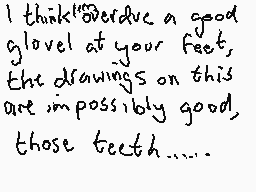 I think I'm overdue a good
glovel at your feet,
the drawings on this
are impossibly good,
those teeth.....